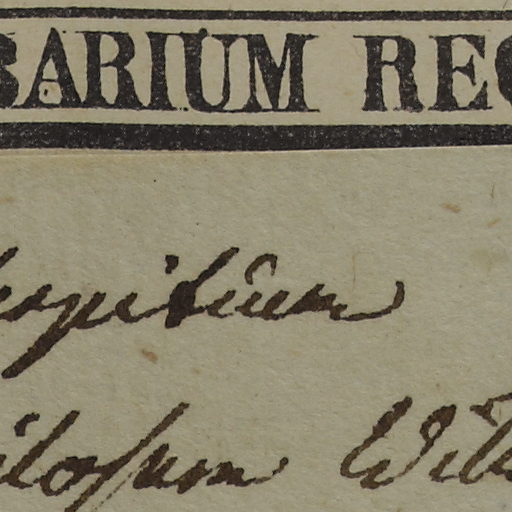 BARIUM REG
erpitium
ilosum Will